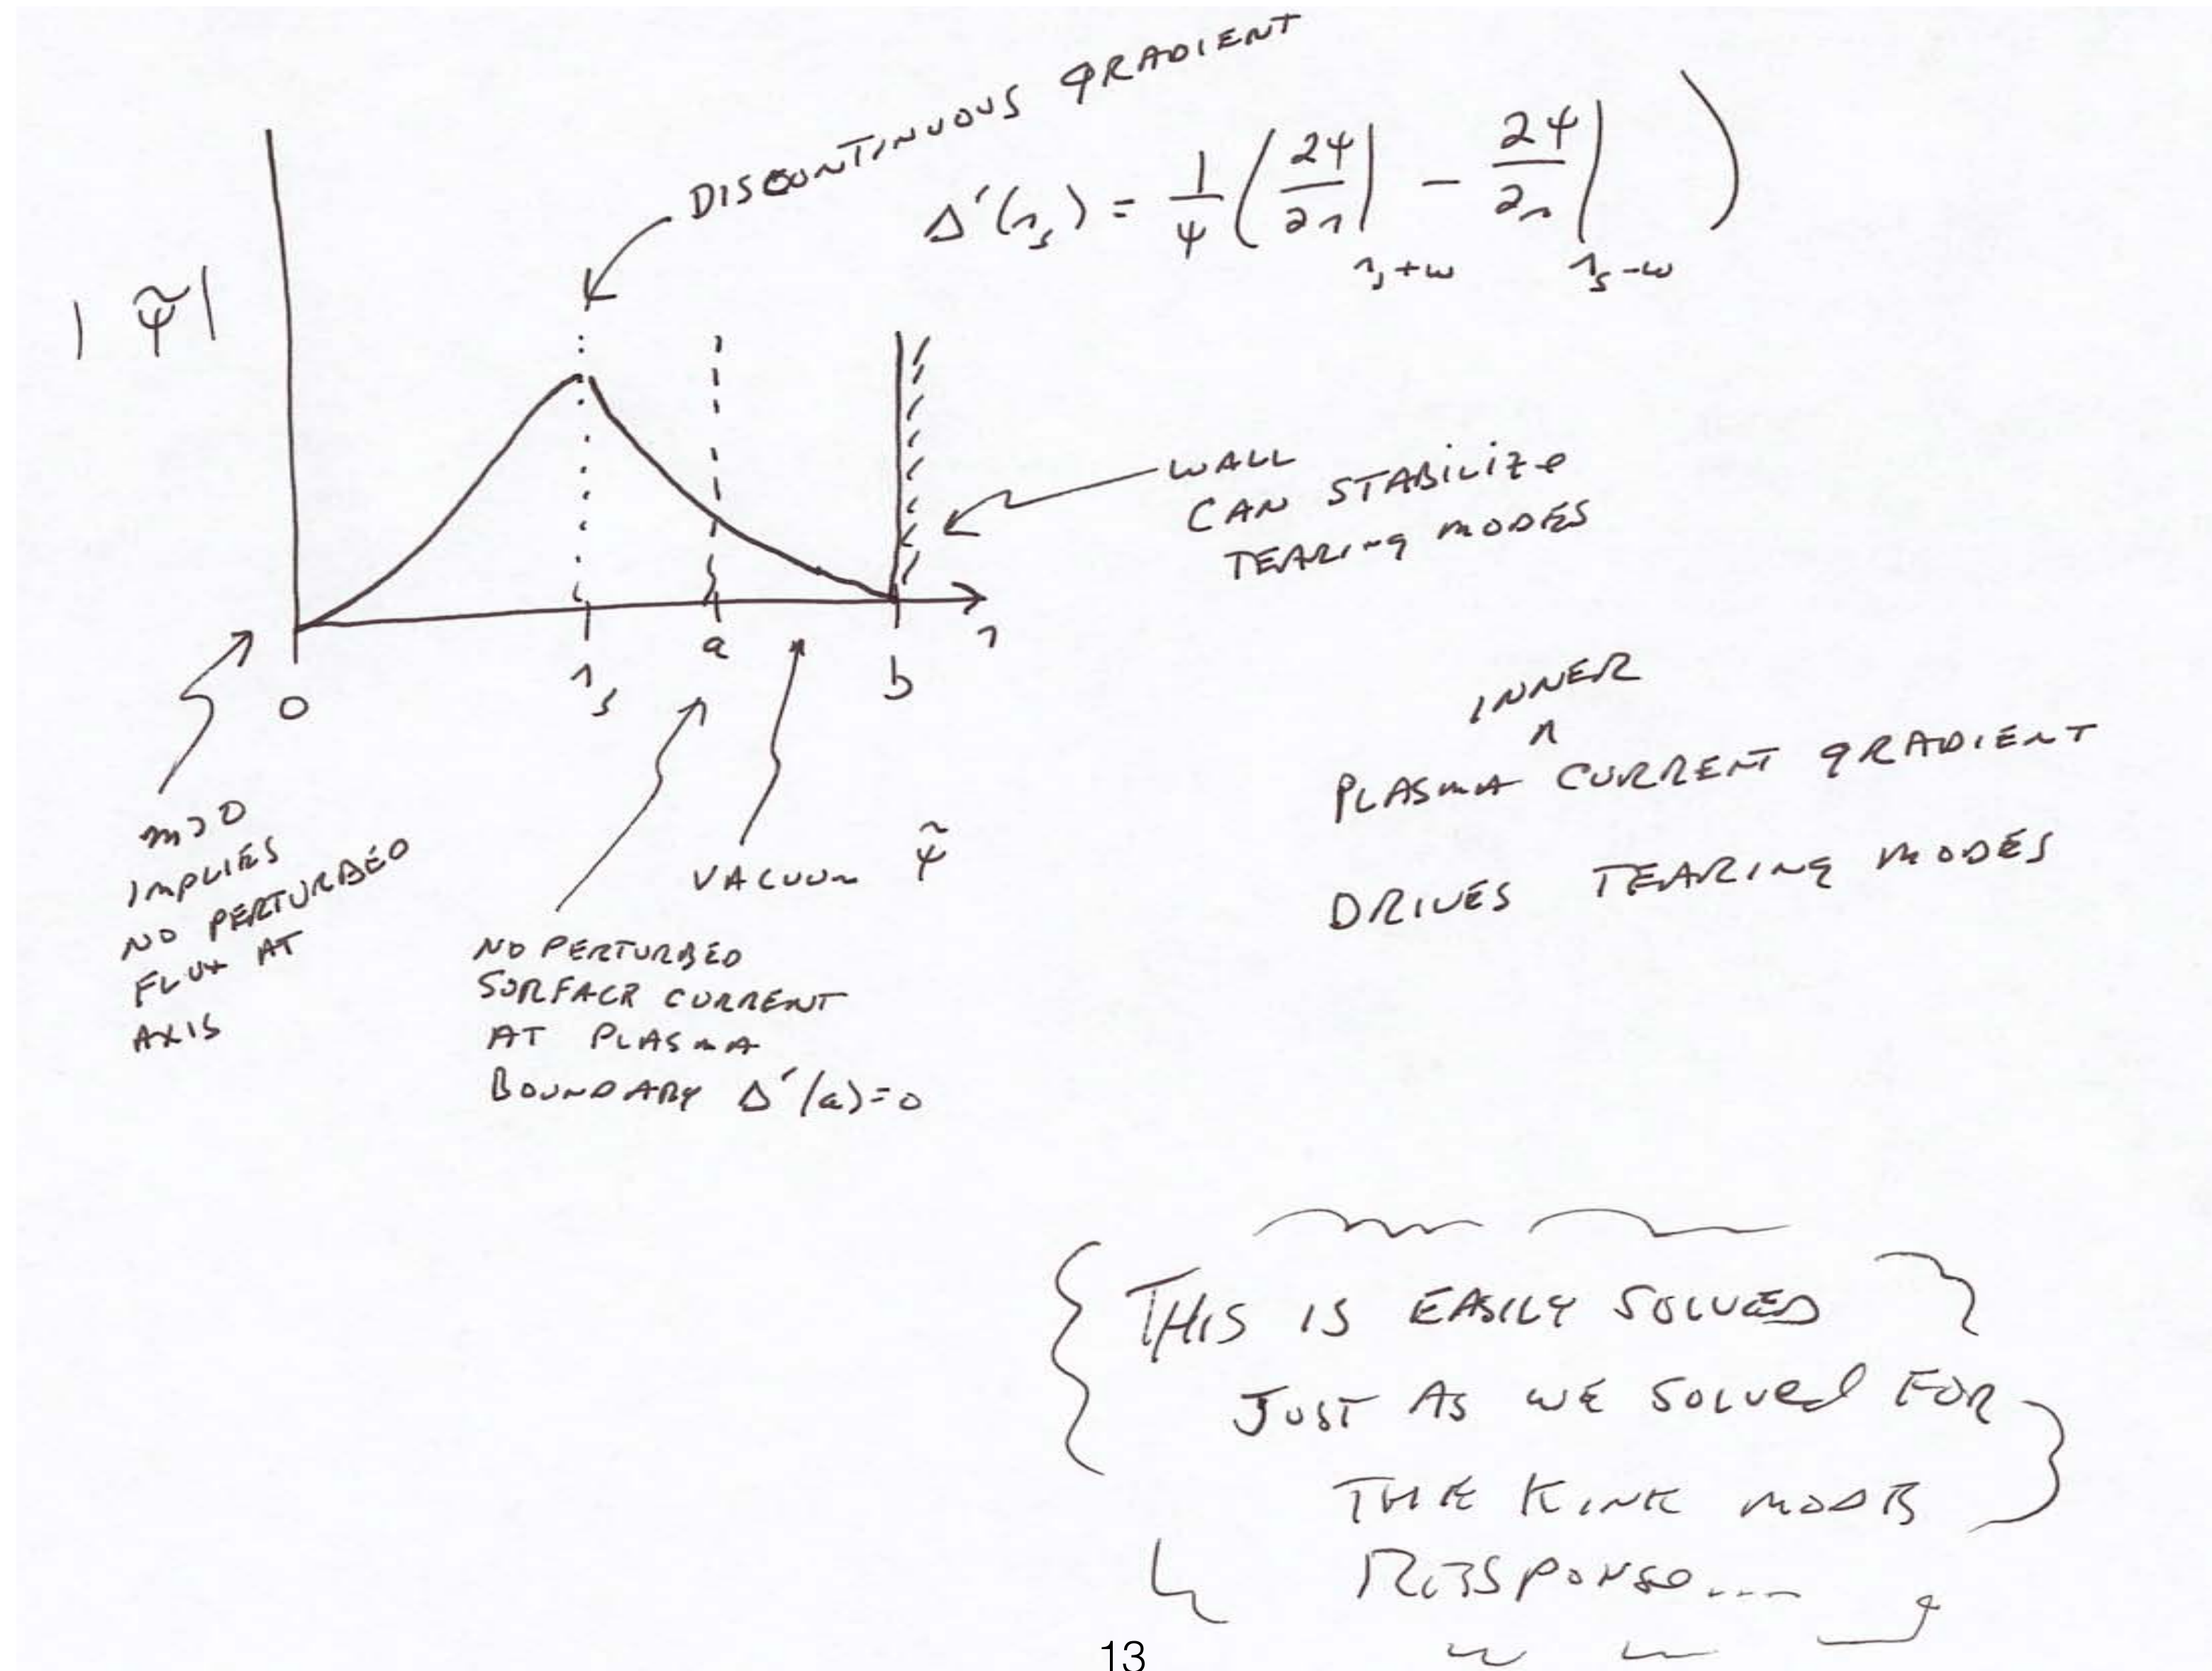 DISCONTINUOUS GRADIENT
Δ′(r_s) = 1/ψ (∂ψ/∂r|_{r_s+w} − ∂ψ/∂r|_{r_s−w})
|ψ̃|
WALL
CAN STABILIZE
TEARING MODES
0
r_s
a
b
r
m>0
IMPLIES
NO PERTURBED
FLUX AT
AXIS
NO PERTURBED
SURFACE CURRENT
AT PLASMA
BOUNDARY Δ′(a)=0
VACUUM ψ̃
INNER
PLASMA ^ CURRENT GRADIENT
DRIVES TEARING MODES
THIS IS EASILY SOLVED
JUST AS WE SOLVED FOR
THE KINK MODE
RESPONSE...
13